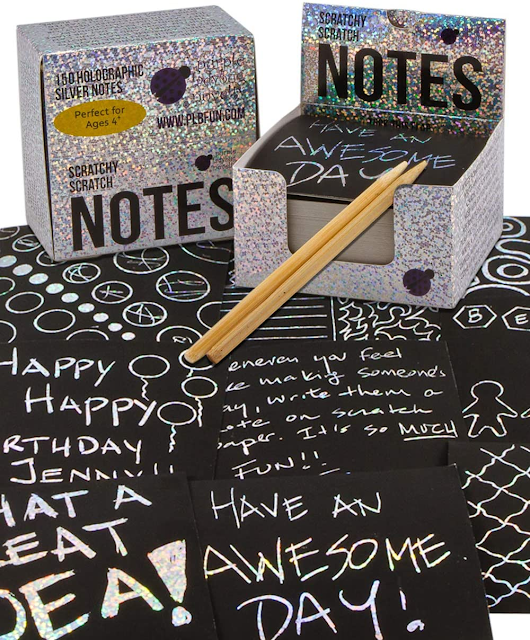 150 HOLOGRAPHIC
SILVER NOTES
Perfect for
Ages 4+
Purple
Ladybug
WWW.PLBFUN.COM
SCRATCHY
SCRATCH
NOTES
SCRATCHY
SCRATCH
NOTES
HAVE AN
AWESOME
DAY
B E
HAPPY
HAPPY
RTHDAY
JENNY!!
enever you feel
ke making someone's
ay, write them a
ote on scratch
aper. It is so MUCH
FUN!!
HAT A
EAT
DEA!
HAVE AN
AWESOME
DAY!